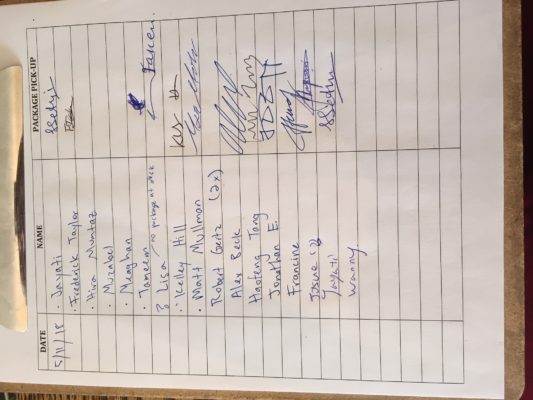 DATE NAME PACKAGE PICK-UP
5/11/18 · Jayati SSethi
· Frederick Taylor
· Hira Mumtaz
· Mirabel
· Meaghan
· Tameem Taken
? Lisa no package at desk
· Kelley Hill
· Matt Mullman
Robert Geitz (2x)
Alex Beck
Haoteng Tang
Jonathan E.
Francine
Josue (2)
Jayati SSethi